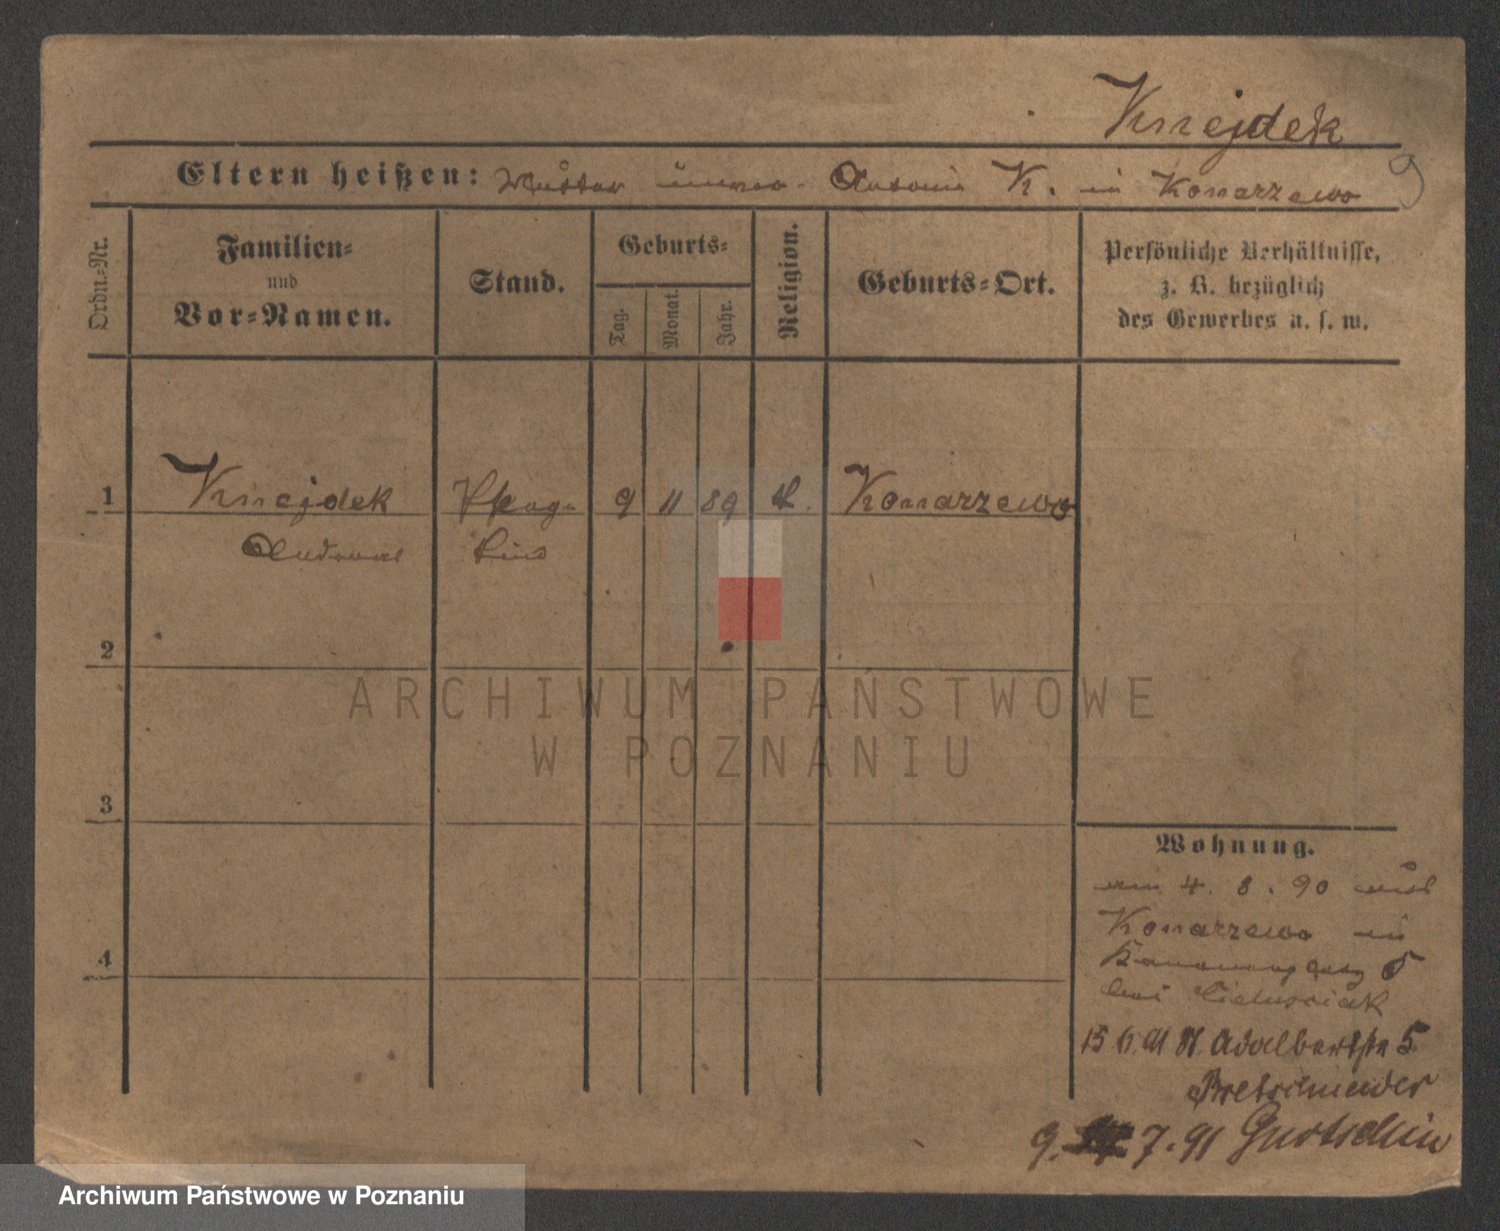 Knejdek
9
Eltern heißen: Mutter unver. Antonie K. in Konarzewo
Ordn.-Nr.
Familien-
und
Vor-Namen.
Stand.
Geburts-
Tag.
Monat.
Jahr.
Religion.
Geburts-Ort.
Persönliche Verhältnisse,
z. B. bezüglich
des Gewerbes u. s. w.
1
Knejdek
Andreas
Pflege
kind
9
11
89
k.
Konarzewo
2
ARCHIWUM PAŃSTWOWE
W POZNANIU
3
4
Wohnung.
am 4. 8. 90 aus
Konarzewo in
5
bei
15 6. 91 St. Adalbertstr 5
Bretschneider
9. 7. 91 Gurtschin
Archiwum Państwowe w Poznaniu